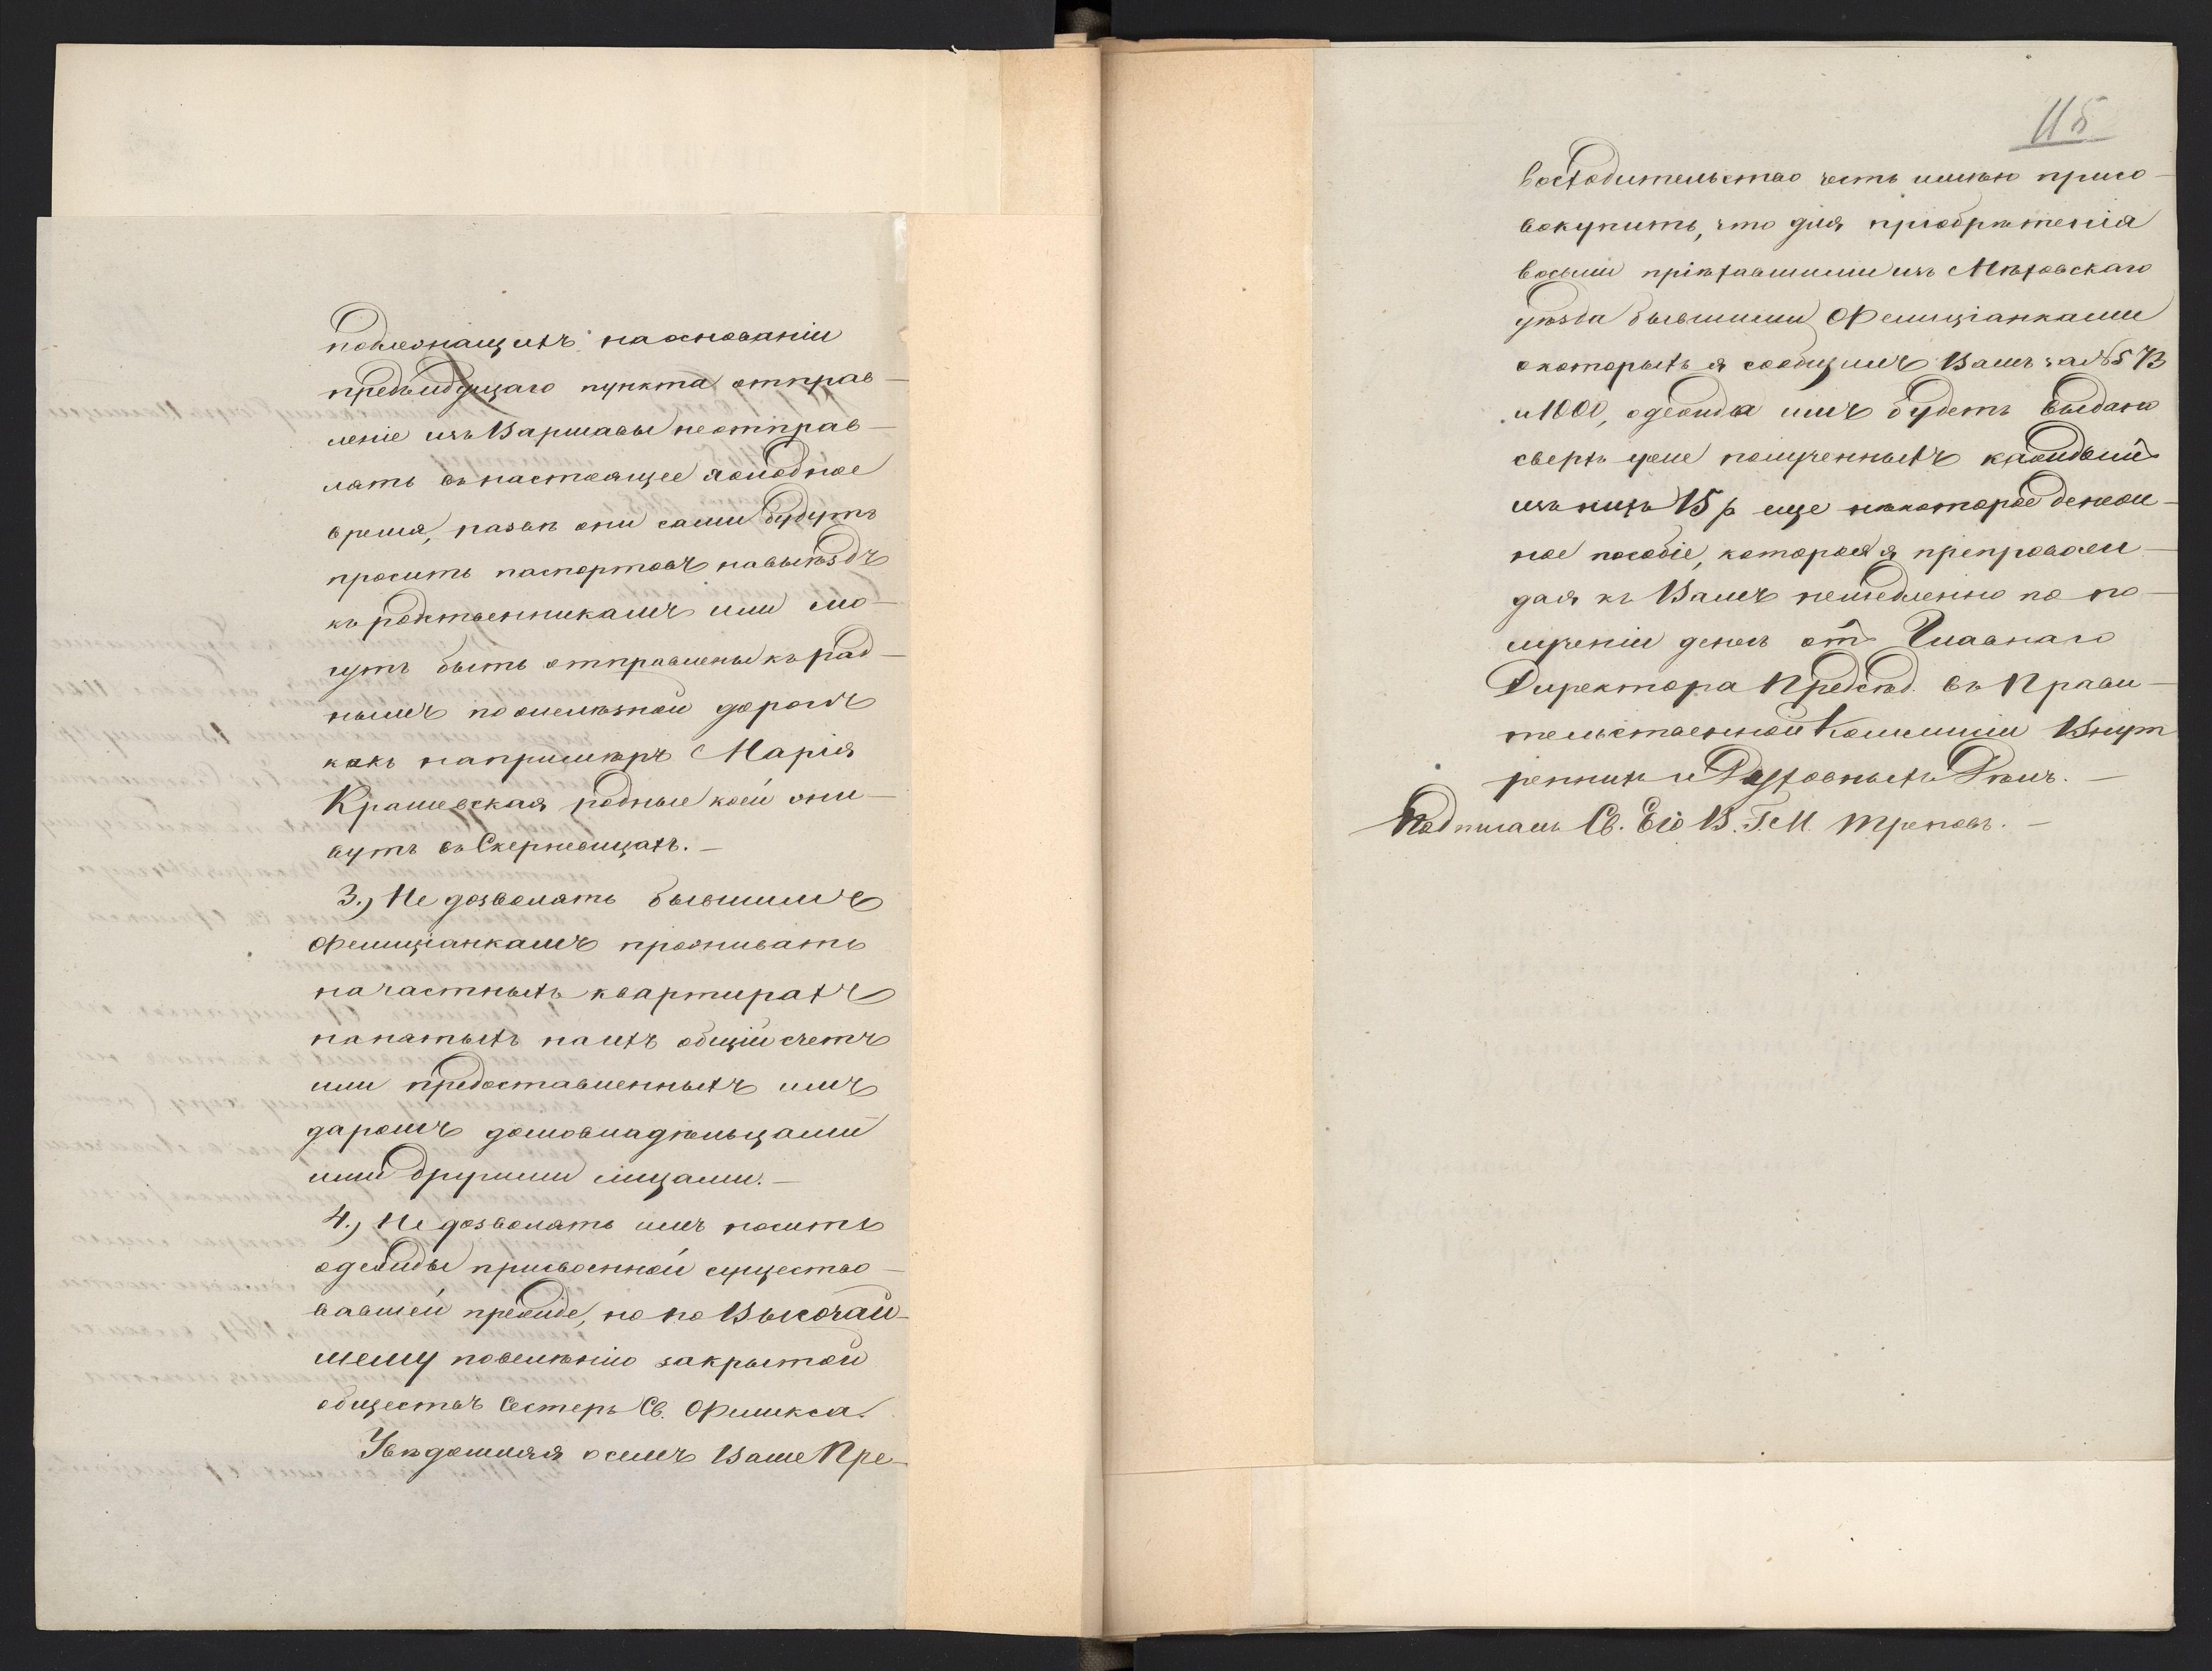 подлежащихъ на основаніи
предъидущаго пункта отправ-
ленію изъ Варшавы не отправ-
лять въ настоящее холодное
время, развѣ они сами будутъ
просить паспортовъ на выѣздъ
къ родственникамъ или мо-
гутъ быть отправлены къ род-
нымъ по желѣзной дорогѣ
какъ напримѣръ Марія
Крашевская родные коей жи-
вутъ въ Скерневицахъ. —
3.) Не дозволять бывшимъ
Фелиціанкамъ проживать
на частныхъ квартирахъ
нанятыхъ на ихъ общій счетъ
или предоставленныхъ имъ
даромъ домовладѣльцами
или другими лицами. —
4.) Не дозволять имъ носить
одежды присвоенной существо-
вавшей прежде, но по Высочай-
шему повелѣнію закрытой
обществѣ Сестеръ Св. Феликса.
Увѣдомляя о семъ Ваше Пре-
115
восходительство честь имѣю присо-
вокупить, что для пріобрѣтенія
восьми пріѣхавшими изъ Мѣховскаго
уѣзда бывшими Фелиціанками
о которыхъ я сообщилъ Вамъ за № 573
и 1000, одежды имъ будетъ выдано
сверхъ уже полученныхъ каждый
изъ нихъ 15 р. еще нѣкоторое денеж-
ное пособіе, которое я препровож-
дая къ Вамъ немедленно по по-
лученіи денегъ отъ Главнаго
Директора Предсѣд. въ Прави-
тельственной Коммисіи Внут
реннихъ и Духовныхъ Дѣлъ. —
Подписалъ Св. Его В. Г. М. Треповъ. —